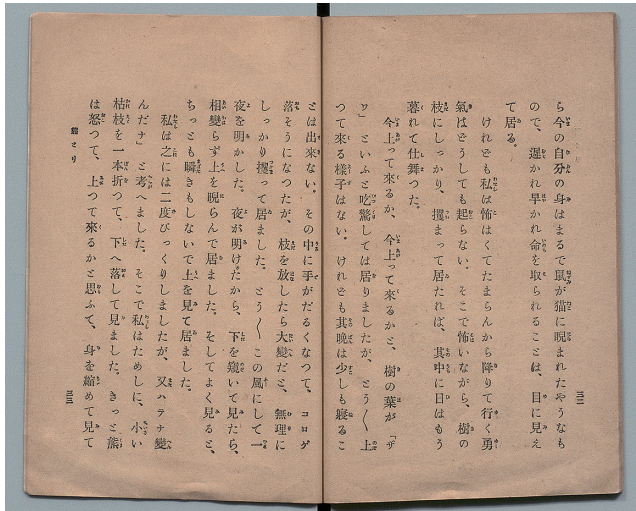 ら今の自分の身はまるで鼠が猫に睨まれたやうなも
ので、遲かれ早かれ命を取られることは、目に見え
て居る。
けれども私は怖はくてたまらんから降りて行く勇
氣はどうしても起らない。そこで怖いながら、樹の
枝にしっかり、攫まって居たれば、其中に日はもう
暮れて仕舞つた。
今上って來るか、今上って來るかと、樹の葉が「ザ
ワ」といふと吃驚しては居りましたが、とう〱上
つて來る樣子はない。けれども其晩は少しも寢るこ
三二
とは出來ない。その中に手がだるくなつて、コロゲ
落そうになつたが、枝を放したら大變だと、無理に
しっかり攫って居ました。とう〱この風にして一
夜を明かした。夜が明けたから、下を窺いて見たら、
相變らず上を睨らんで居ました。そしてよく見ると、
ちっとも瞬きもしないで上を見て居ました。
私は之には二度びっくりしましたが、又ハテナ變
んだナ」と考へました。そこで私はためしに、小い
枯枝を一本折つて、下へ落して見ました。きっと熊
は怒つて、上つて來るかと思ふて、身を縮めて見て
熊とり
三三